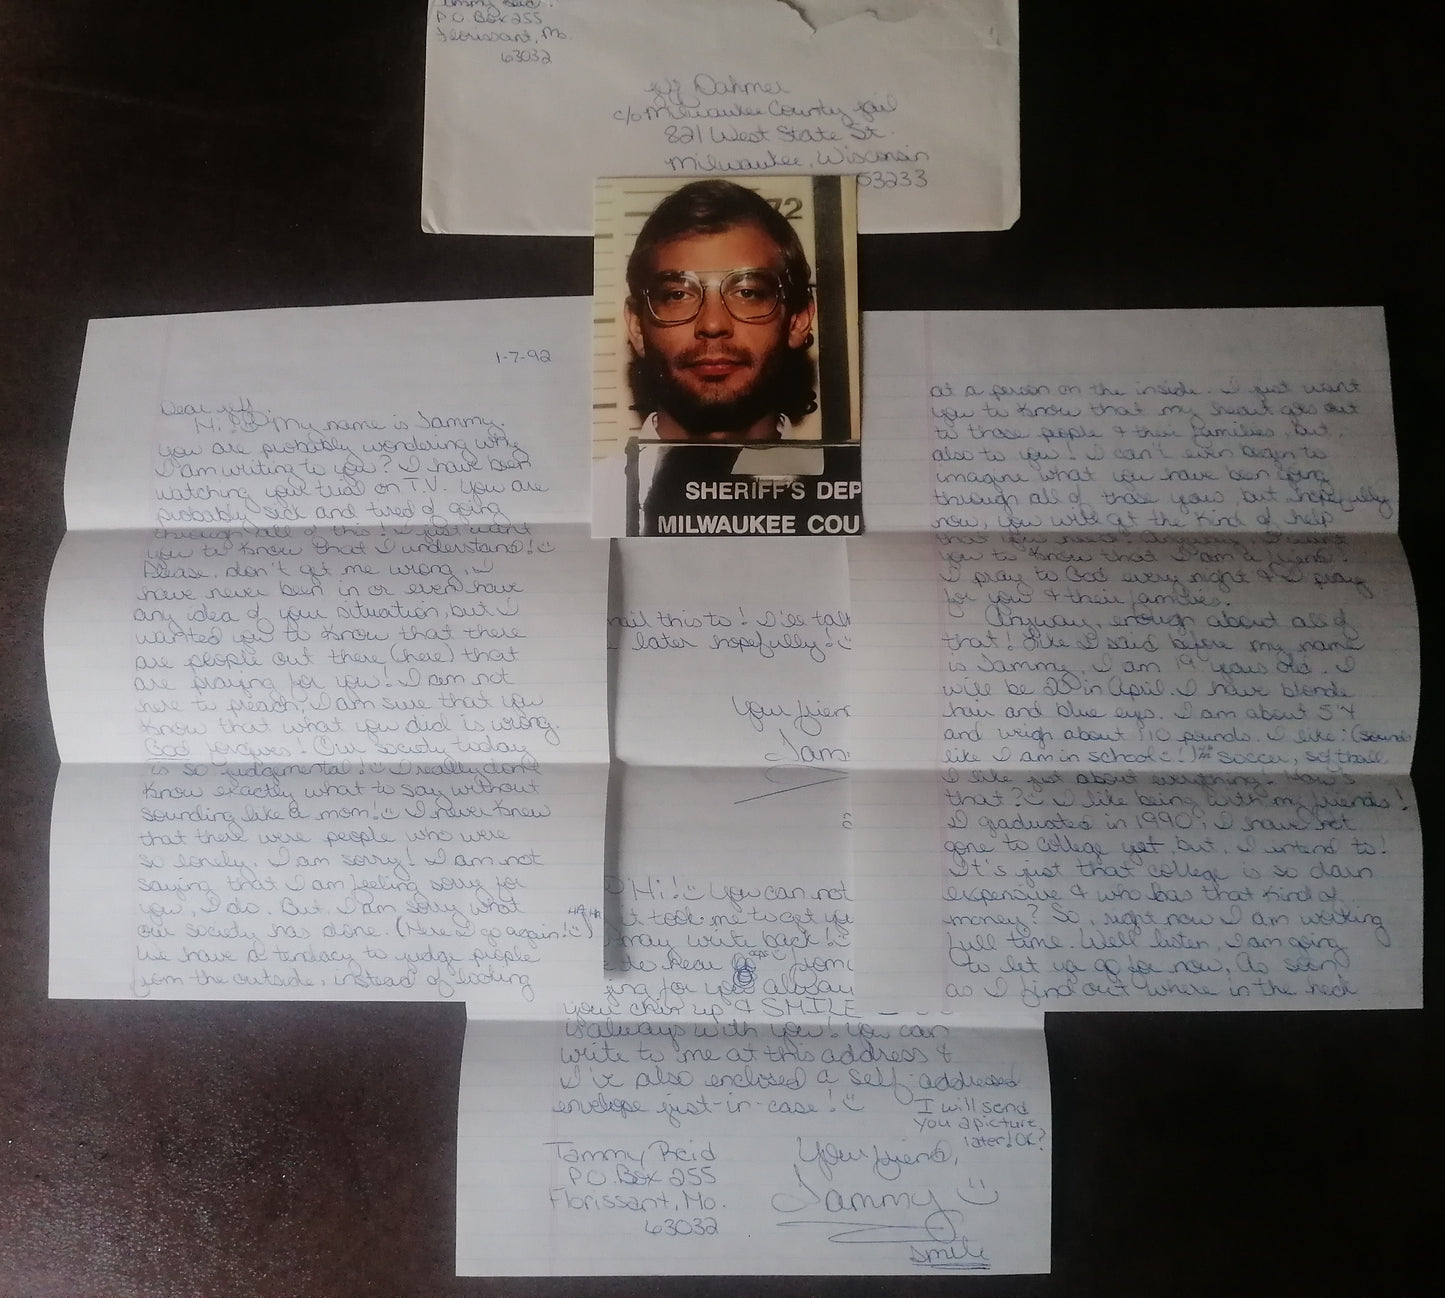 Tammy Reid
P.O. Box 255
Florissant, Mo.
63032
Jeff Dahmer
c/o Milwaukee County Jail
821 West State St.
Milwaukee, Wisconsin
53233
72
SHERIFF'S DEP
MILWAUKEE COU
1-7-92
Dear Jeff,
Hi! My name is Tammy.
You are probably wondering why
I am writing to you? I have been
watching your trial on T.V. You are
probably sick and tired of going
through all of this! I just want
you to know that I understand!
Please, don't get me wrong, I
have never been in or even have
any idea of your situation, but I
wanted you to know that there
are people out there (here) that
are praying for you! I am not
here to preach, I am sure that you
know that what you did is wrong.
God forgives! Our society today
is so judgemental! I really don't
know exactly what to say without
sounding like a mom! I never knew
that there were people who were
so lonely. I am sorry! I am not
saying that I am feeling sorry for
you, I do. But, I am sorry what
our society has done. (Here I go again!) HA HA
We have a tendacy to judge people
from the outside, instead of looking
at a person on the inside. I just want
you to know that my heart goes out
to those people & their families, but,
also to you! I can't even begin to
imagine what you have been going
through all of those years, but hopefully
now, you will get the kind of help
that you need! Anyway, I want
you to know that I am a friend!
I pray to God every night & I pray
for you & their families.
Anyway, enough about all of
that! Like I said before my name
is Tammy, I am 19 years old. I
will be 20 in April. I have blonde
hair and blue eyes. I am about 5'4
and weigh about 110 pounds. I like: (sounds
like I am in school!) soccer, softball
I like just about everything! How's
that? I like being with my friends!
I graduated in 1990, I have not
gone to college yet, but, I intend to!
It's just that college is so darn
expensive & who has that kind of
money? So, right now I am working
full time. Well listen, I am going
to let ya go for now, As soon
as I find out where in the heck
mail this to! I'll talk
later hopefully!
Your frien
Tam
Hi! You can not
it took me to get you
may write back!
hear from
ing for you always
your chin up & SMILE
is always with you! You can
write to me at this address &
I've also enclosed a self-addressed
envelope just-in-case!
I will send
you a picture
later! OK?
Your friend,
Tammy
smile
Tammy Reid
P.O. Box 255
Florissant, Mo.
63032